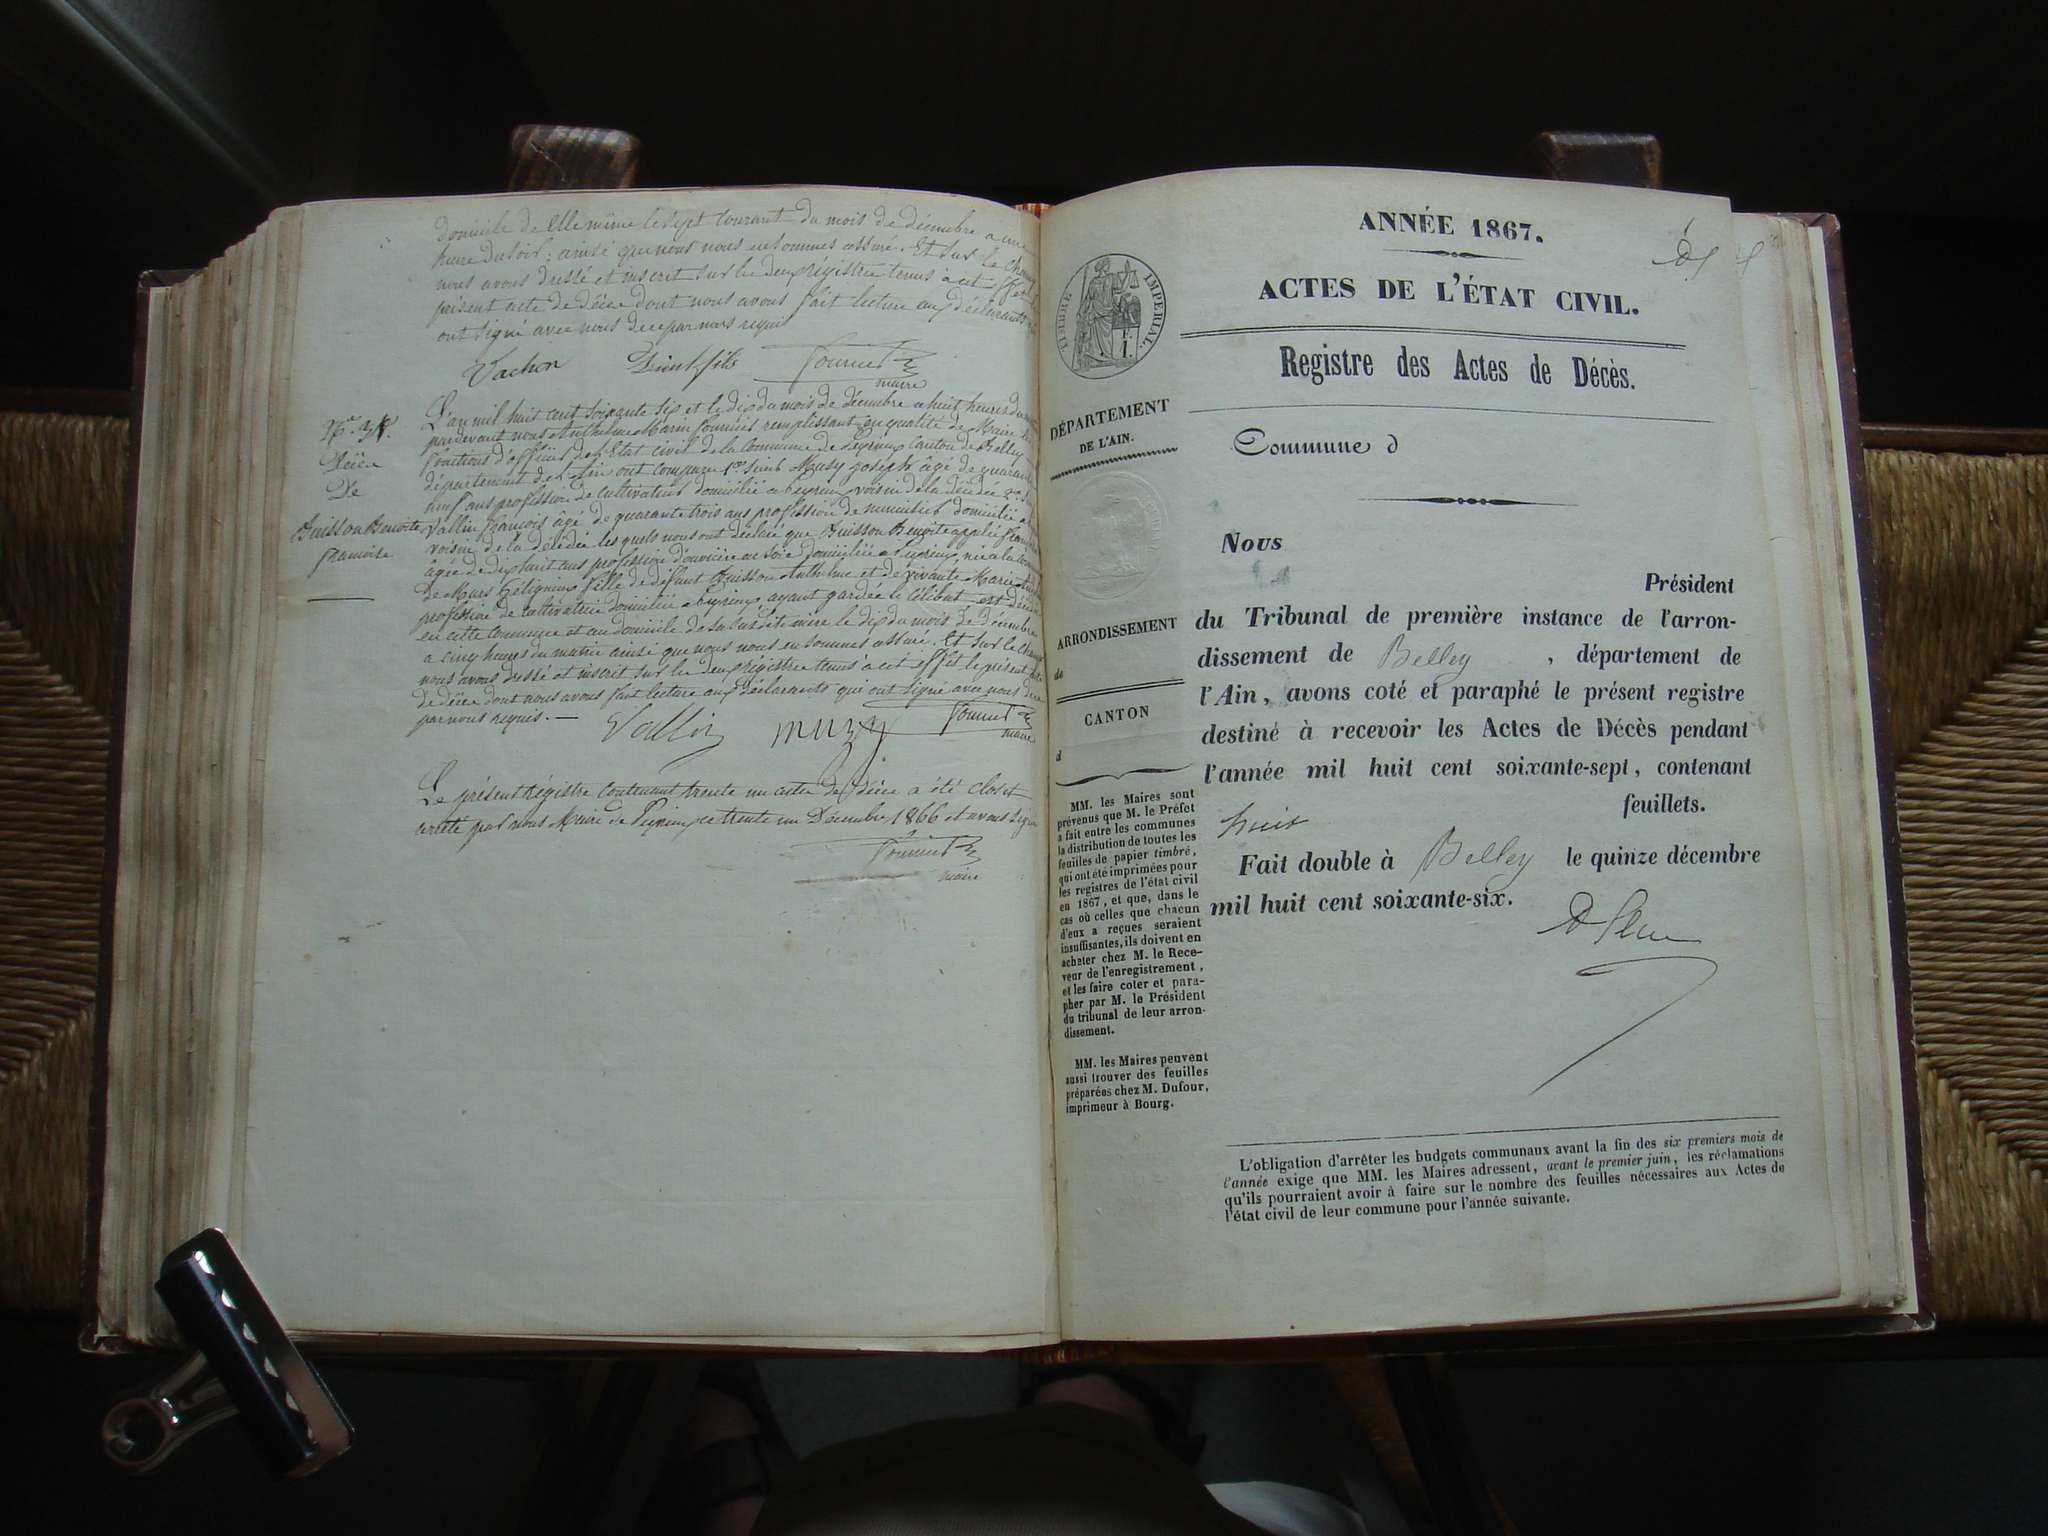 domicile de Elle même le sept courant du mois de décembre a une
heure du soir; ainsi que nous nous en sommes assuré. Et sur le champ
nous avons dressé et inscrit sur les deux régistres tenus à cet effet le
présent acte de décès dont nous avons fait lecture aux déclarants
ont signé avec nous de ce par nous requis
Vachon fils
maire
Décès
De
Buisson Benoite
francoise
L'an mil huit cent soixante six et le dix du mois de décembre a huit heures du
pardevant nous Anthelme Marin fournier remplissant en qualité de Maire les
fonctions d'officier de l'Etat civil de la commune de Peyrieux Canton de Belley
département de l'Ain ont comparu 1er sieur Musy Joseph âgé de quarante
neuf ans profession de cultivateur domicilié a Peyrieux voisin de la décédée 2e
Vallin françois âgé de quarante trois ans profession de domicilié a
voisin de la décédée les quels nous ont déclaré que Buisson Benoite
âgée de dix huit ans profession d'ouvrière en soie domiciliée a Peyrieux, née a la
de Murs Gélignieux fille de défunt Buisson Anthelme et de vivante Marie
profession de cultivatrice domiciliée a Peyrieux ayant gardée le célibat est décédée
en cette commune et au domicile de sa mère le dix du mois de Décembre
a cinq heures du matin ainsi que nous nous en sommes assuré. Et sur le champ
nous avons dressé et inscrit sur les deux régistres tenus à cet effet le présent acte
de décès dont nous avons fait lecture aux déclarants qui ont signé avec nous de ce
par nous requis. —
Vallin muzy
maire
Le présent régistre contenant trente un actes de décès a été clos et
arrêté par nous Maire de Peyrieux ce trente un Décembre 1866 et avons signé
maire
ANNÉE 1867.
ACTES DE L'ÉTAT CIVIL.
Registre des Actes de Décès.
TIMBRE IMPERIAL.
DÉPARTEMENT
DE L'AIN.
Commune d
Nous
Président
du Tribunal de première instance de l'arron-
dissement de Belley , département de
l'Ain, avons coté et paraphé le présent registre
destiné à recevoir les Actes de Décès pendant
l'année mil huit cent soixante-sept, contenant
huit feuillets.
Fait double à Belley le quinze décembre
mil huit cent soixante-six.
ARRONDISSEMENT
de
CANTON
d
MM. les Maires sont
prévenus que M. le Préfet
a fait entre les communes
la distribution de toutes les
feuilles de papier timbré,
qui ont été imprimées pour
les registres de l'état civil
en 1867, et que, dans le
cas où celles que chacun
d'eux a reçues seraient
insuffisantes, ils doivent en
acheter chez M. le Rece-
veur de l'enregistrement,
et les faire coter et para-
pher par M. le Président
du tribunal de leur arron-
dissement.
MM. les Maires peuvent
aussi trouver des feuilles
préparées chez M. Dufour,
imprimeur à Bourg.
L'obligation d'arrêter les budgets communaux avant la fin des six premiers mois de
l'année exige que MM. les Maires adressent, avant le premier juin, les réclamations
qu'ils pourraient avoir à faire sur le nombre des feuilles nécessaires aux Actes de
l'état civil de leur commune pour l'année suivante.